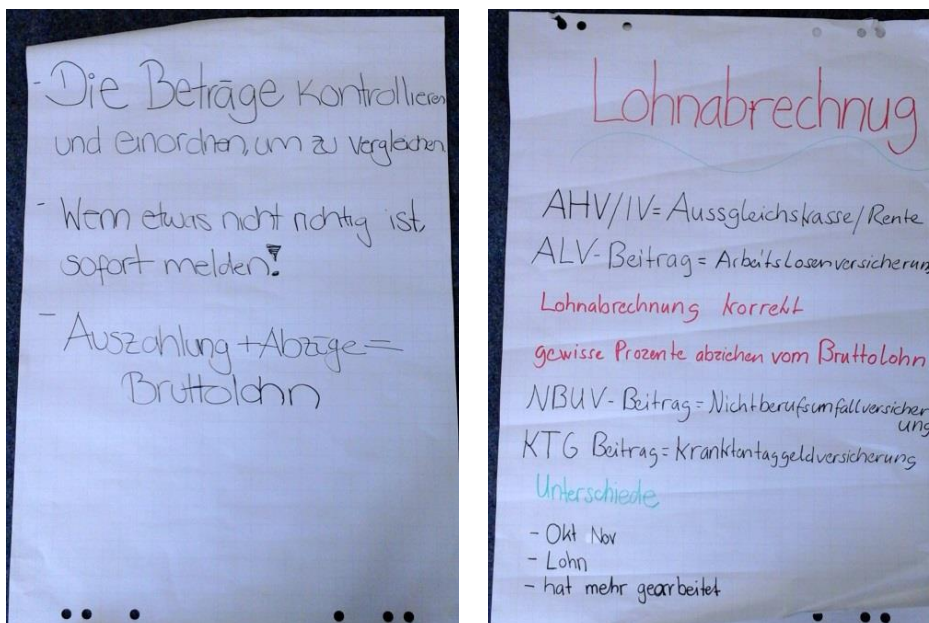 - Die Beträge kontrollieren
und einordnen, um zu vergleichen
- Wenn etwas nicht richtig ist,
sofort melden!
- Auszahlung + Abzüge =
Bruttolohn
Lohnabrechnug
AHV/IV = Aussgleichskasse/Rente
ALV-Beitrag = Arbeitslosenversicherung
Lohnabrechnung korrekt
gewisse Prozente abziehen vom Bruttolohn
NBUV-Beitrag = Nichtberufsunfallversicher
ung
KTG Beitrag = Kranktantaggeldversicherung
Unterschiede
- Okt Nov
- Lohn
- hat mehr gearbeitet